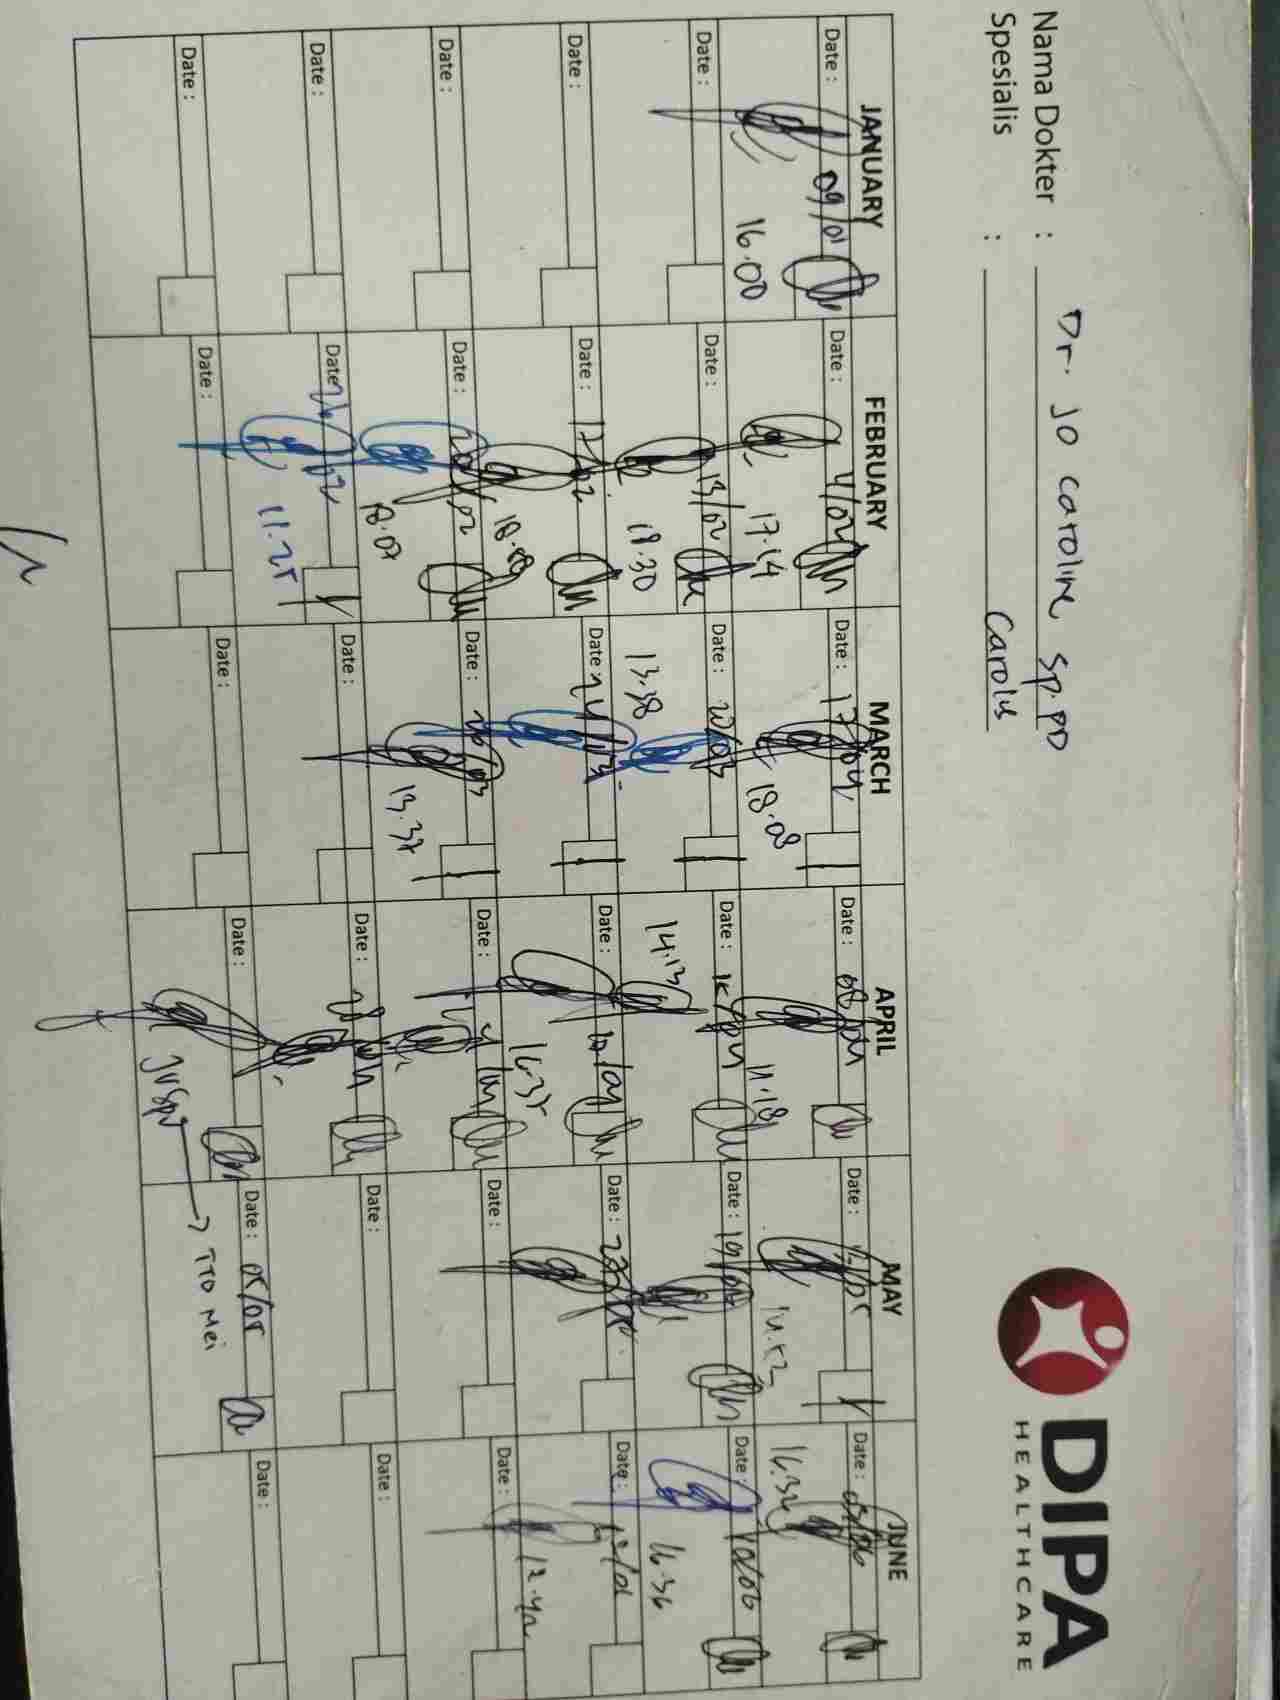 DIPA
HEALTHCARE
Nama Dokter : Dr. Jo Caroline Sp.PD
Spesialis : Carolus
JANUARY FEBRUARY MARCH APRIL MAY JUNE
Date : 09/01 Date : 4/02 Date : Date : Date : Date : 03/06
16.00 17.14 18.08 11.18 14.52 16.32
Date : Date : 13/02 Date : 20/03 Date : Date : 19/05 Date : 10/06
18.30 13.38 14.13 16.36
Date : Date : 17/02 Date : 24/03 Date : Date : Date :
18.08 16.35 12.42
Date : Date : 20/02 Date : 26/03 Date : Date : Date :
18.07 13.37
Date : Date : Date : Date : Date : Date :
11.25
Date : Date : Date : Date : Date : 05/05 Date :
Jusper → TTD Mei